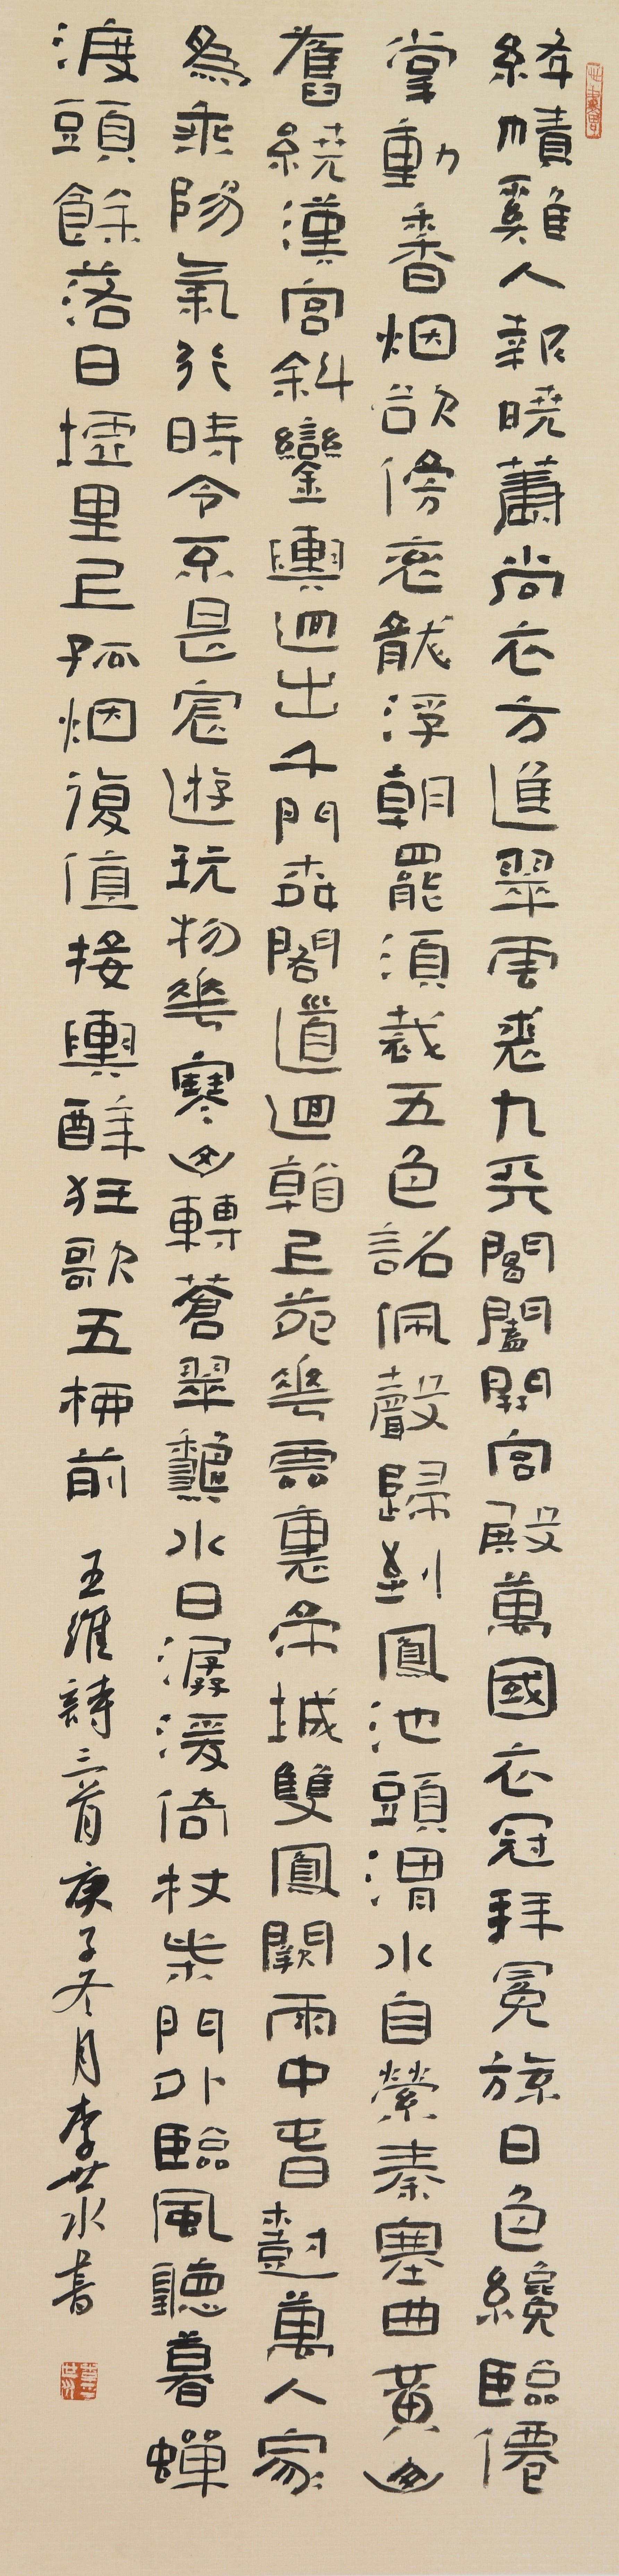 絳幘雞人報曉籌尚衣方進翠雲裘九天閶闔開宮殿萬國衣冠拜冕旒日色纔臨僊
掌動香烟欲傍袞龍浮朝罷須裁五色詔佩聲歸到鳳池頭渭水自縈秦塞曲黃山
舊繞漢宮斜鑾輿迴出千門柳閣道迴看上苑華雲裏帝城雙鳳闕雨中春樹萬人家
為乘陽氣行時令不是宸遊玩物華寒山轉蒼翠秋水日潺湲倚杖柴門外臨風聽暮蟬
渡頭餘落日墟里上孤烟復值接輿醉狂歌五柳前 王維詩三首庚子冬月李世水書